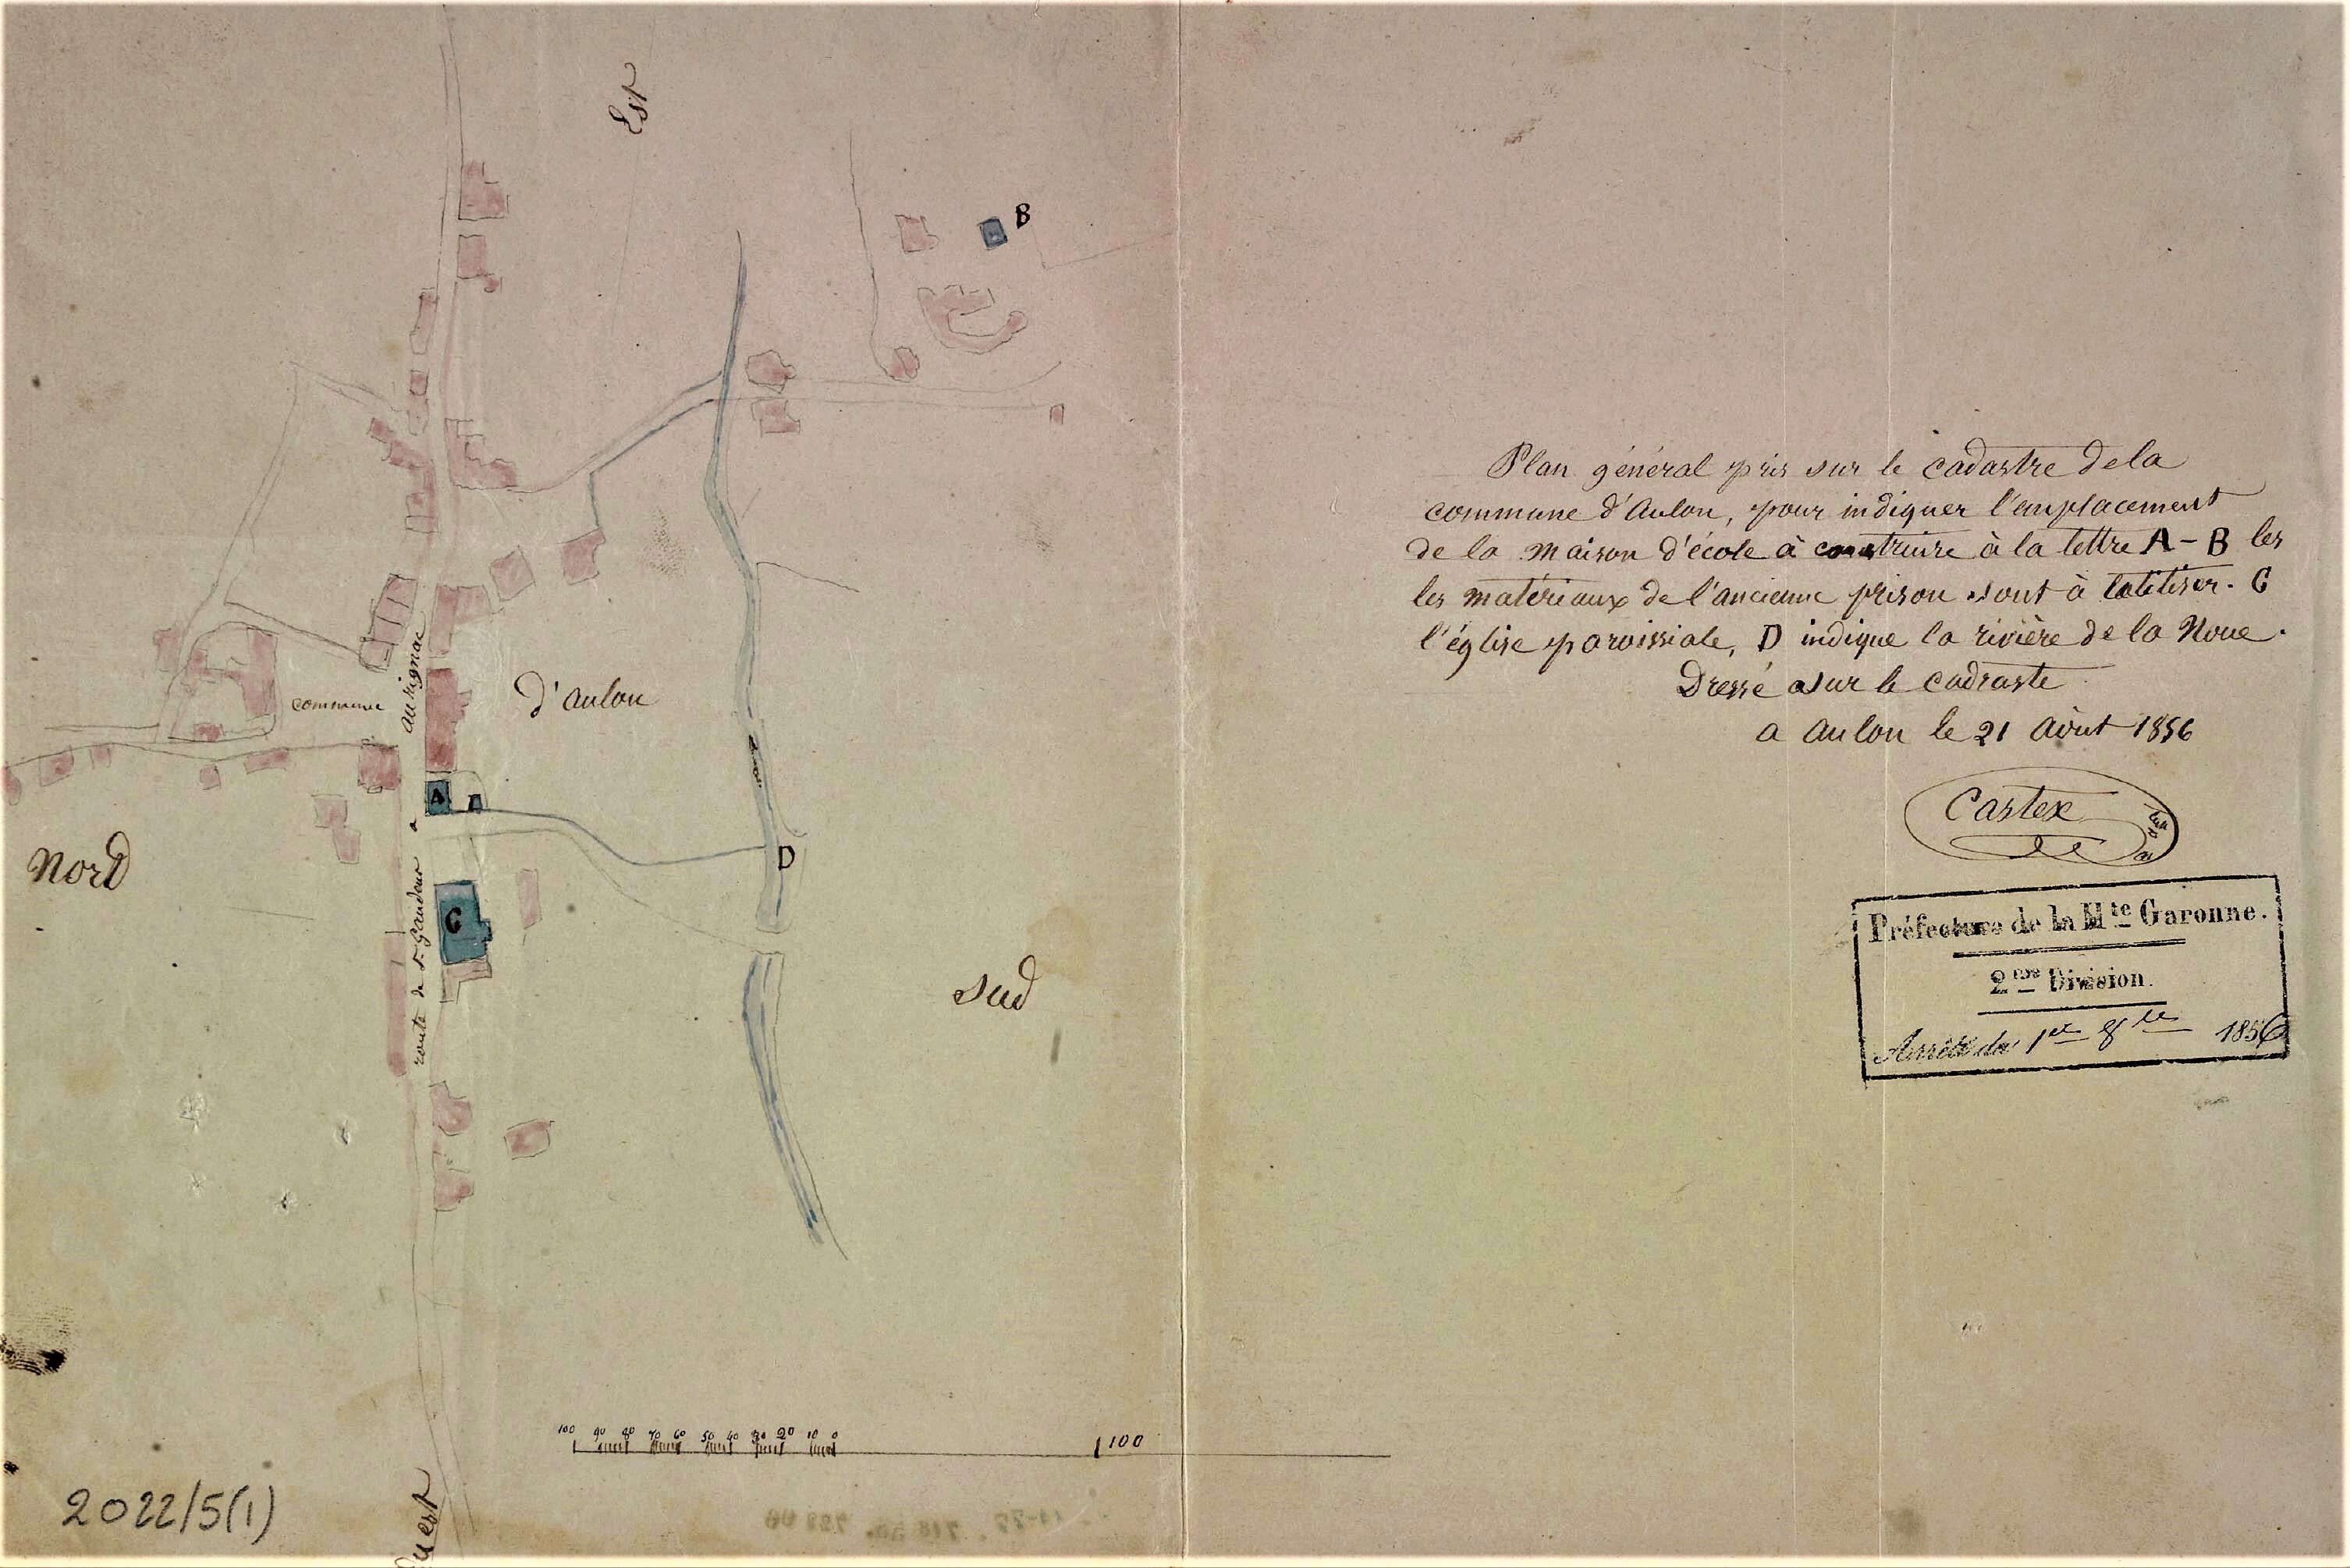 Est
B
Plan général pris sur le cadastre de la
commune d'Aulon, pour indiquer l'emplacement
de la maison d'école à construire à la lettre A - B les
les matériaux de l'ancienne prison sont à C
l'église paroissiale, D indique la rivière de la Noue.
Dressé sur le cadraste
a Aulon le 21 Août 1856
Castex
Préfecture de la Hte Garonne.
2me Division.
Arrêté du 1er 8bre 1856
commune
d'aulon
route de St Gaudens a aurignac
A
Nord
D
C
Sud
100 90 80 70 60 50 40 30 20 10 0
100
Ouest
2022/5(1)